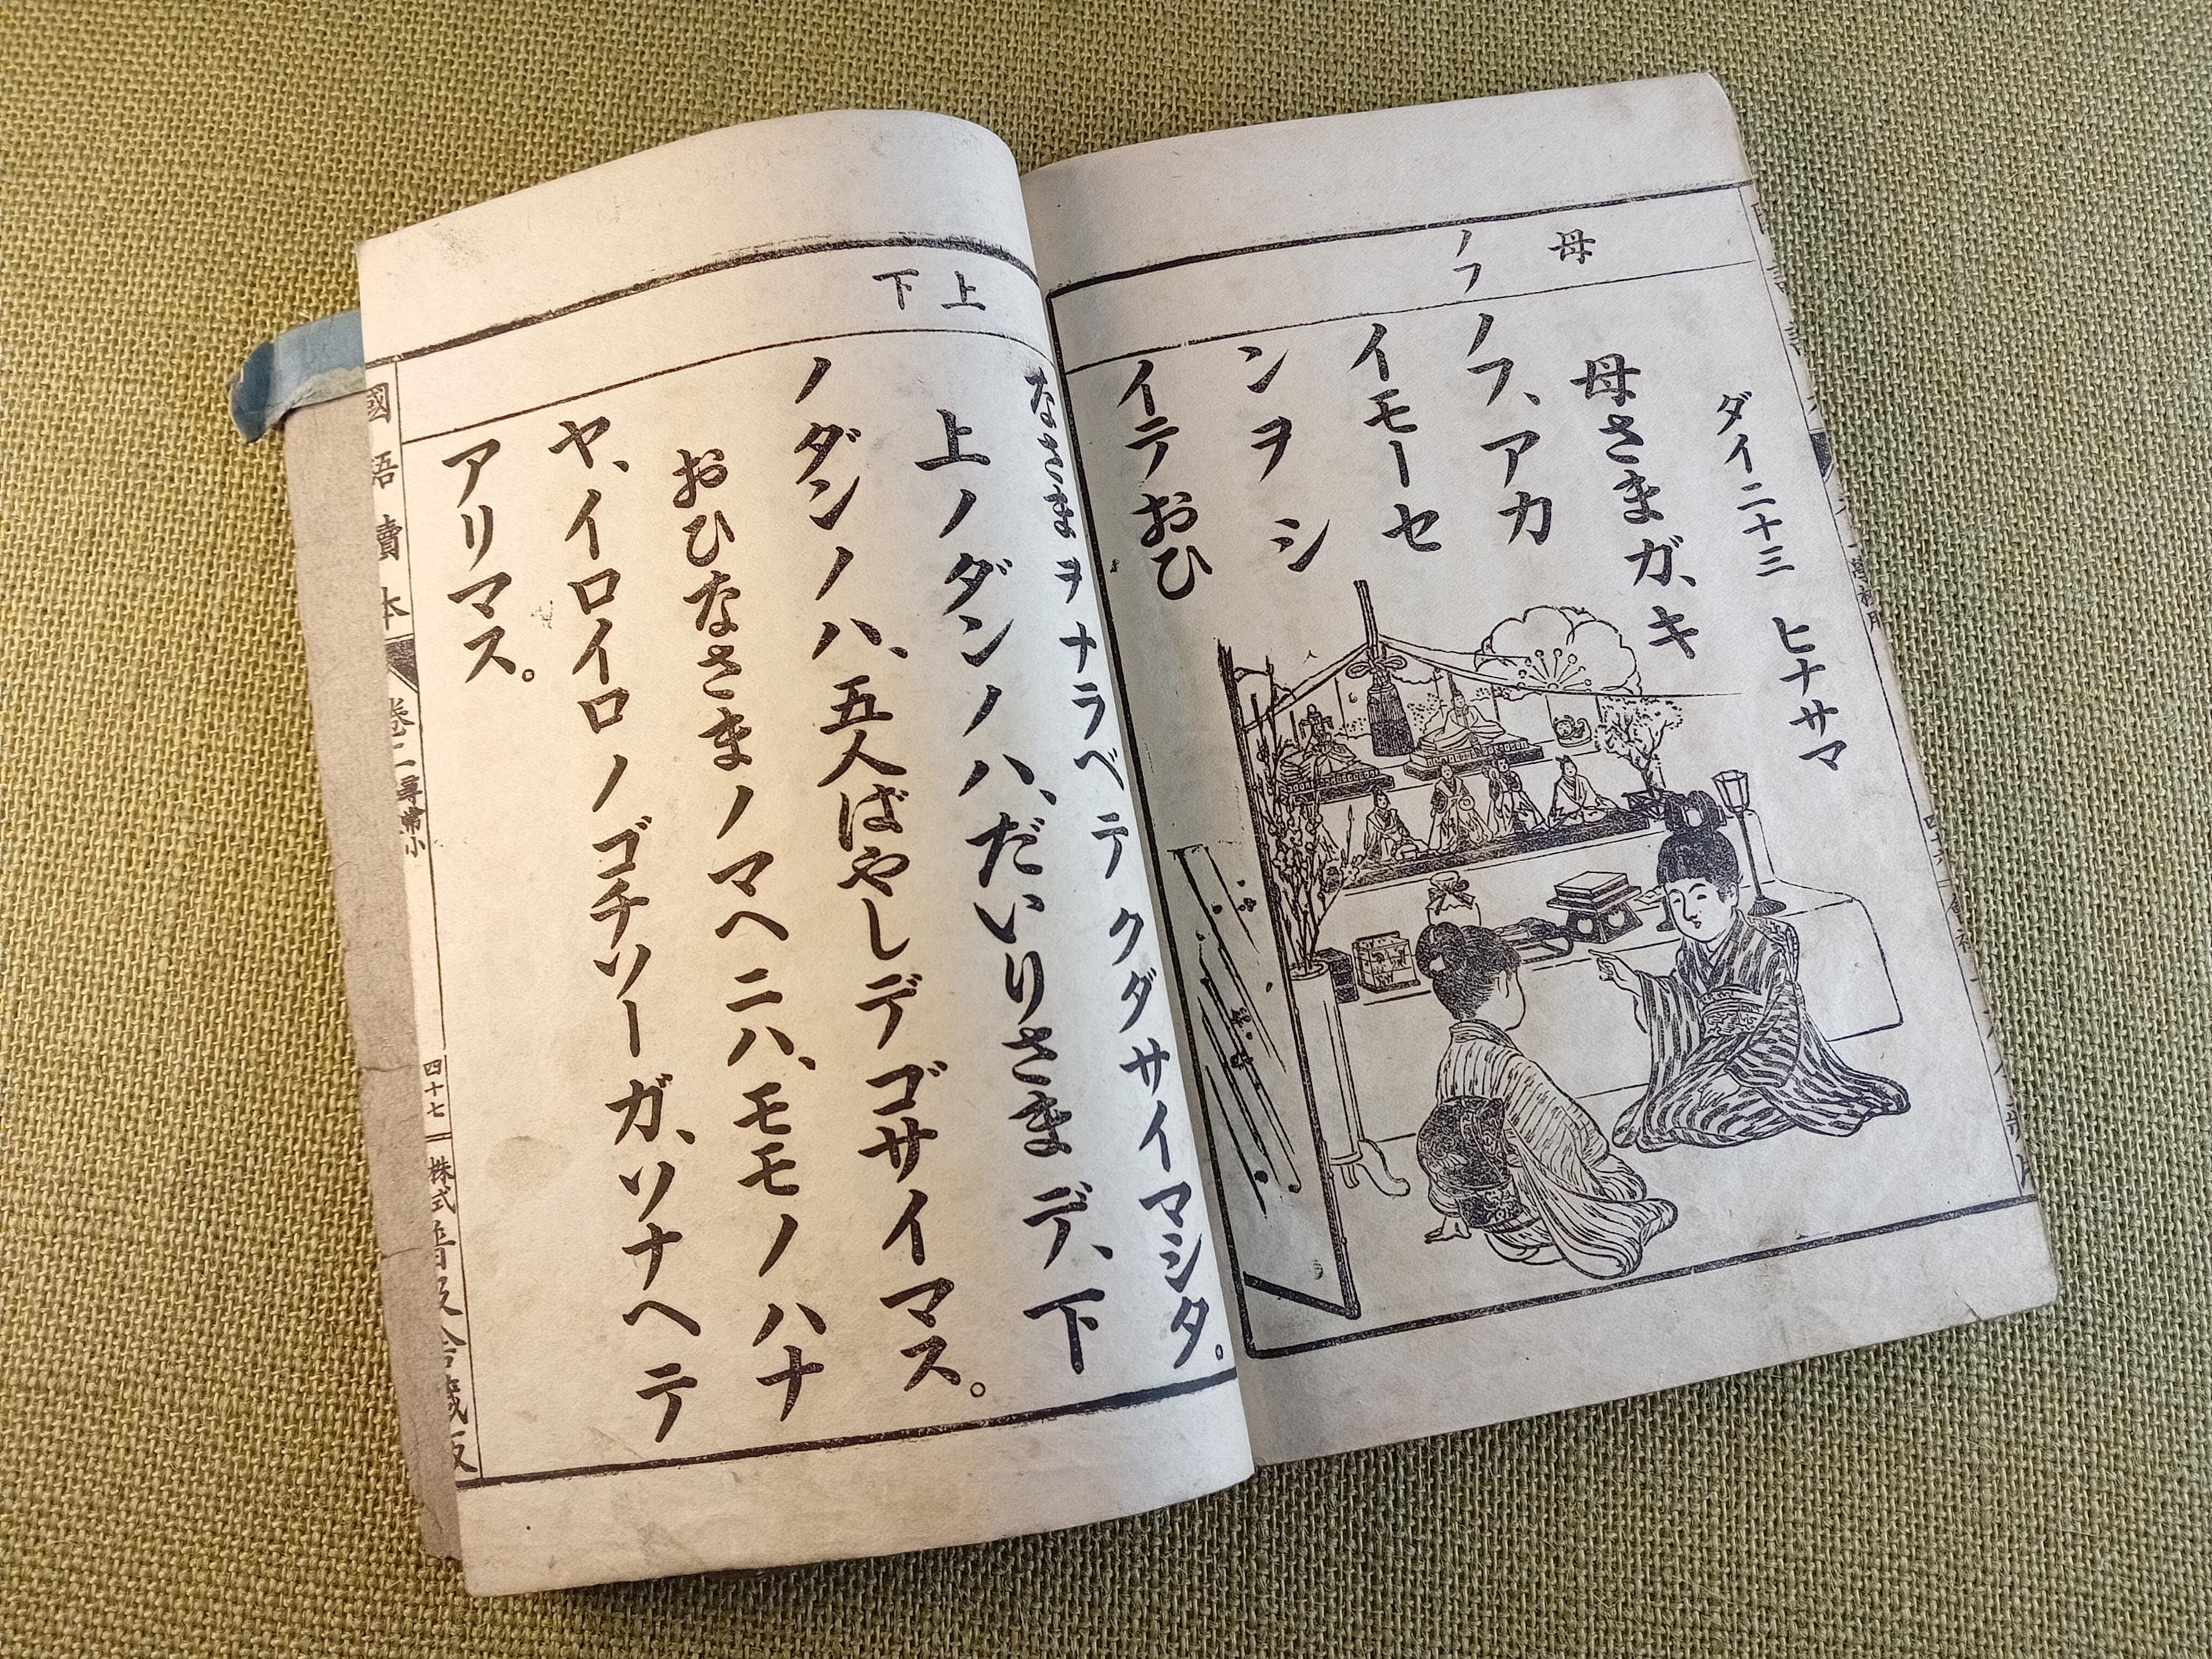 母
ノフ
ダイ二十三　ヒナサマ
母さまガ、キ
ノフ、アカ
イモーセ
ンヲシ
イテおひ
上下
なさまヲナラベテクダサイマシタ。
上ノダンノハ、だいりさまデ、下
ノダンノハ、五人ばやしデゴサイマス。
おひなさまノマヘニハ、モモノハナ
ヤ、イロイロノゴチソーガ、ソナヘテ
アリマス。
國語讀本　卷二尋常小　四十七　株式普及舎藏版